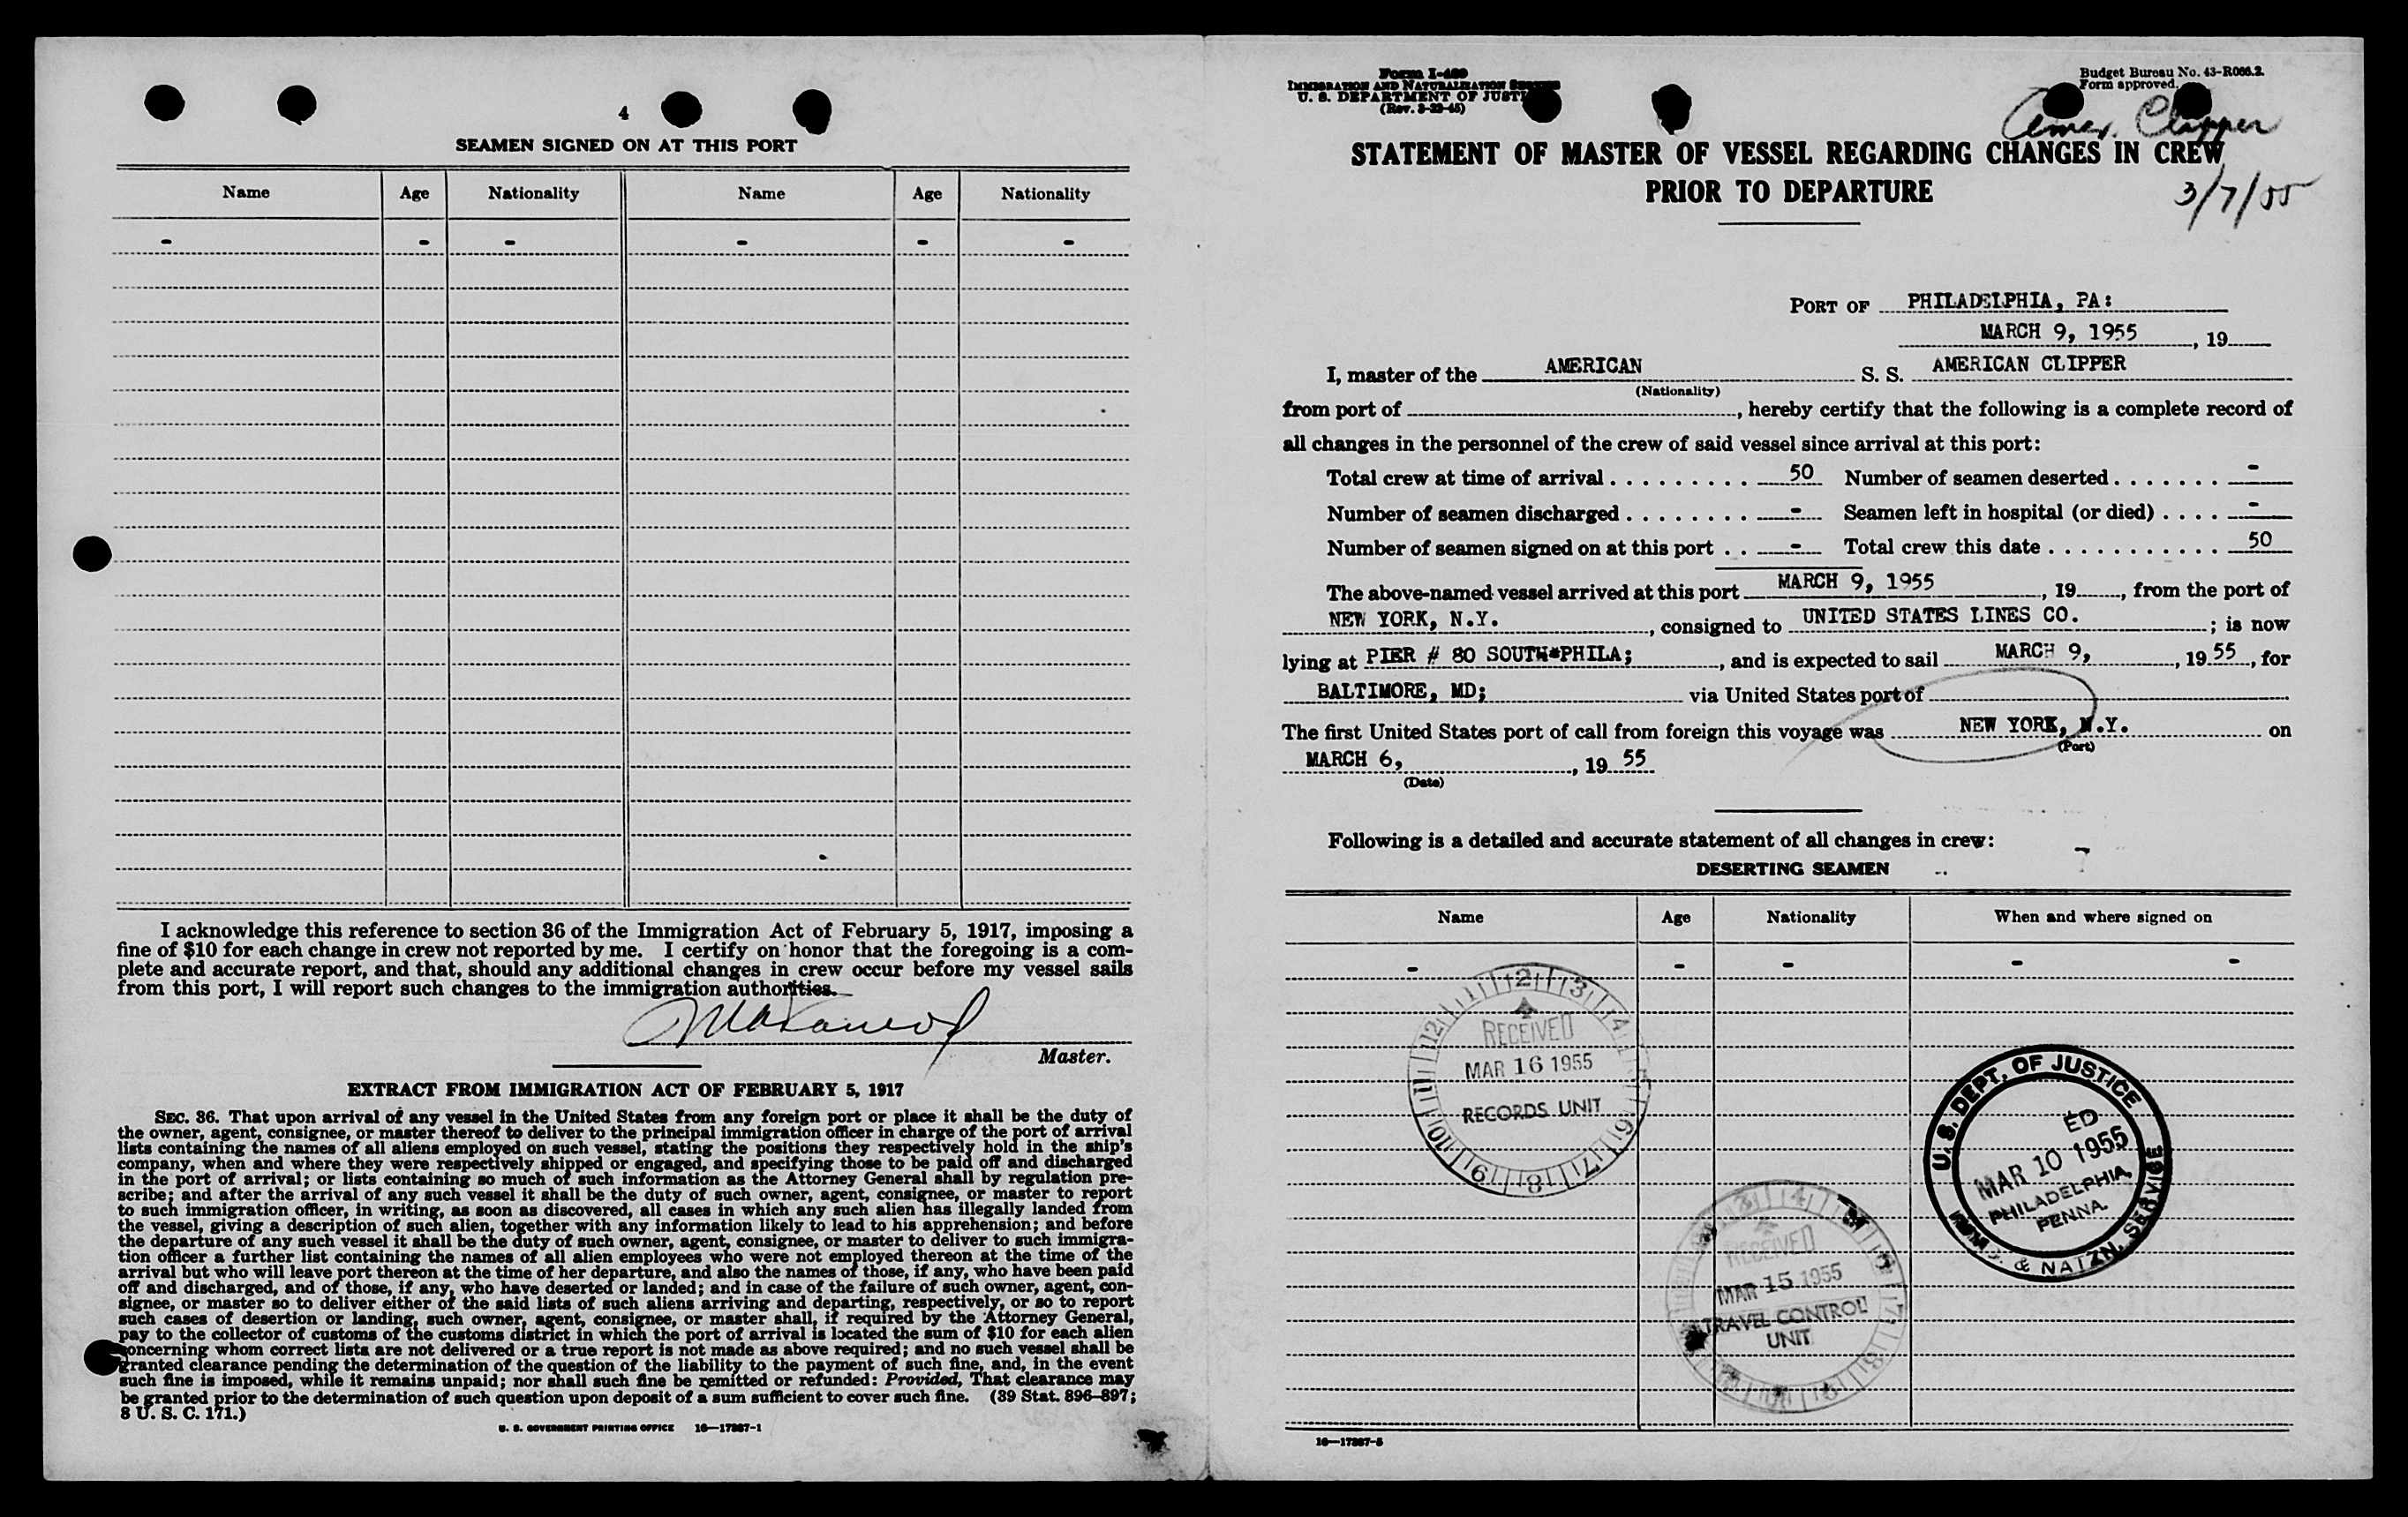 4
SEAMEN SIGNED ON AT THIS PORT
Name Age Nationality Name Age Nationality
- - - - - -
I acknowledge this reference to section 36 of the Immigration Act of February 5, 1917, imposing a
fine of $10 for each change in crew not reported by me. I certify on honor that the foregoing is a com-
plete and accurate report, and that, should any additional changes in crew occur before my vessel sails
from this port, I will report such changes to the immigration authorities.
Master.
EXTRACT FROM IMMIGRATION ACT OF FEBRUARY 5, 1917
SEC. 36. That upon arrival of any vessel in the United States from any foreign port or place it shall be the duty of
the owner, agent, consignee, or master thereof to deliver to the principal immigration officer in charge of the port of arrival
lists containing the names of all aliens employed on such vessel, stating the positions they respectively hold in the ship's
company, when and where they were respectively shipped or engaged, and specifying those to be paid off and discharged
in the port of arrival; or lists containing so much of such information as the Attorney General shall by regulation pre-
scribe; and after the arrival of any such vessel it shall be the duty of such owner, agent, consignee, or master to report
to such immigration officer, in writing, as soon as discovered, all cases in which any such alien has illegally landed from
the vessel, giving a description of such alien, together with any information likely to lead to his apprehension; and before
the departure of any such vessel it shall be the duty of such owner, agent, consignee, or master to deliver to such immigra-
tion officer a further list containing the names of all alien employees who were not employed thereon at the time of the
arrival but who will leave port thereon at the time of her departure, and also the names of those, if any, who have been paid
off and discharged, and of those, if any, who have deserted or landed; and in case of the failure of such owner, agent, con-
signee, or master so to deliver either of the said lists of such aliens arriving and departing, respectively, or so to report
such cases of desertion or landing, such owner, agent, consignee, or master shall, if required by the Attorney General,
pay to the collector of customs of the customs district in which the port of arrival is located the sum of $10 for each alien
concerning whom correct lists are not delivered or a true report is not made as above required; and no such vessel shall be
granted clearance pending the determination of the question of the liability to the payment of such fine, and, in the event
such fine is imposed, while it remains unpaid; nor shall such fine be remitted or refunded: Provided, That clearance may
be granted prior to the determination of such question upon deposit of a sum sufficient to cover such fine. (39 Stat. 896-897;
8 U. S. C. 171.)
U. S. GOVERNMENT PRINTING OFFICE 16—17887-1
Form I-489
IMMIGRATION AND NATURALIZATION SERVICE
U. S. DEPARTMENT OF JUSTI
(Rev. 3-23-45)
Budget Bureau No. 43-R066.2.
Form approved.
Amer. Clipper
STATEMENT OF MASTER OF VESSEL REGARDING CHANGES IN CREW
PRIOR TO DEPARTURE
3/7/55
PORT OF PHILADELPHIA, PA:
MARCH 9, 1955, 19
I, master of the AMERICAN S. S. AMERICAN CLIPPER
(Nationality)
from port of , hereby certify that the following is a complete record of
all changes in the personnel of the crew of said vessel since arrival at this port:
Total crew at time of arrival . . . . . . . . . . 50 Number of seamen deserted . . . . . . . -
Number of seamen discharged . . . . . . . . - Seamen left in hospital (or died) . . . . -
Number of seamen signed on at this port . . - Total crew this date . . . . . . . . . . . 50
The above-named vessel arrived at this port MARCH 9, 1955, 19, from the port of
NEW YORK, N.Y. , consigned to UNITED STATES LINES CO. ; is now
lying at PIER # 80 SOUTH*PHILA; , and is expected to sail MARCH 9, , 19 55, for
BALTIMORE, MD; via United States port of
The first United States port of call from foreign this voyage was NEW YORK, N.Y. on
(Port)
MARCH 6, , 19 55
(Date)
Following is a detailed and accurate statement of all changes in crew:
DESERTING SEAMEN
Name Age Nationality When and where signed on
- - - - -
12 1 2 3 4 5 6 7 8 9 10 11
RECEIVED
MAR 16 1955
RECORDS UNIT
U. S. DEPT. OF JUSTICE
ED
MAR 10 1955
PHILADELPHIA,
PENNA.
& NATZN. SERVICE
RECEIVED
MAR 15 1955
TRAVEL CONTROL
UNIT
16—17887-5